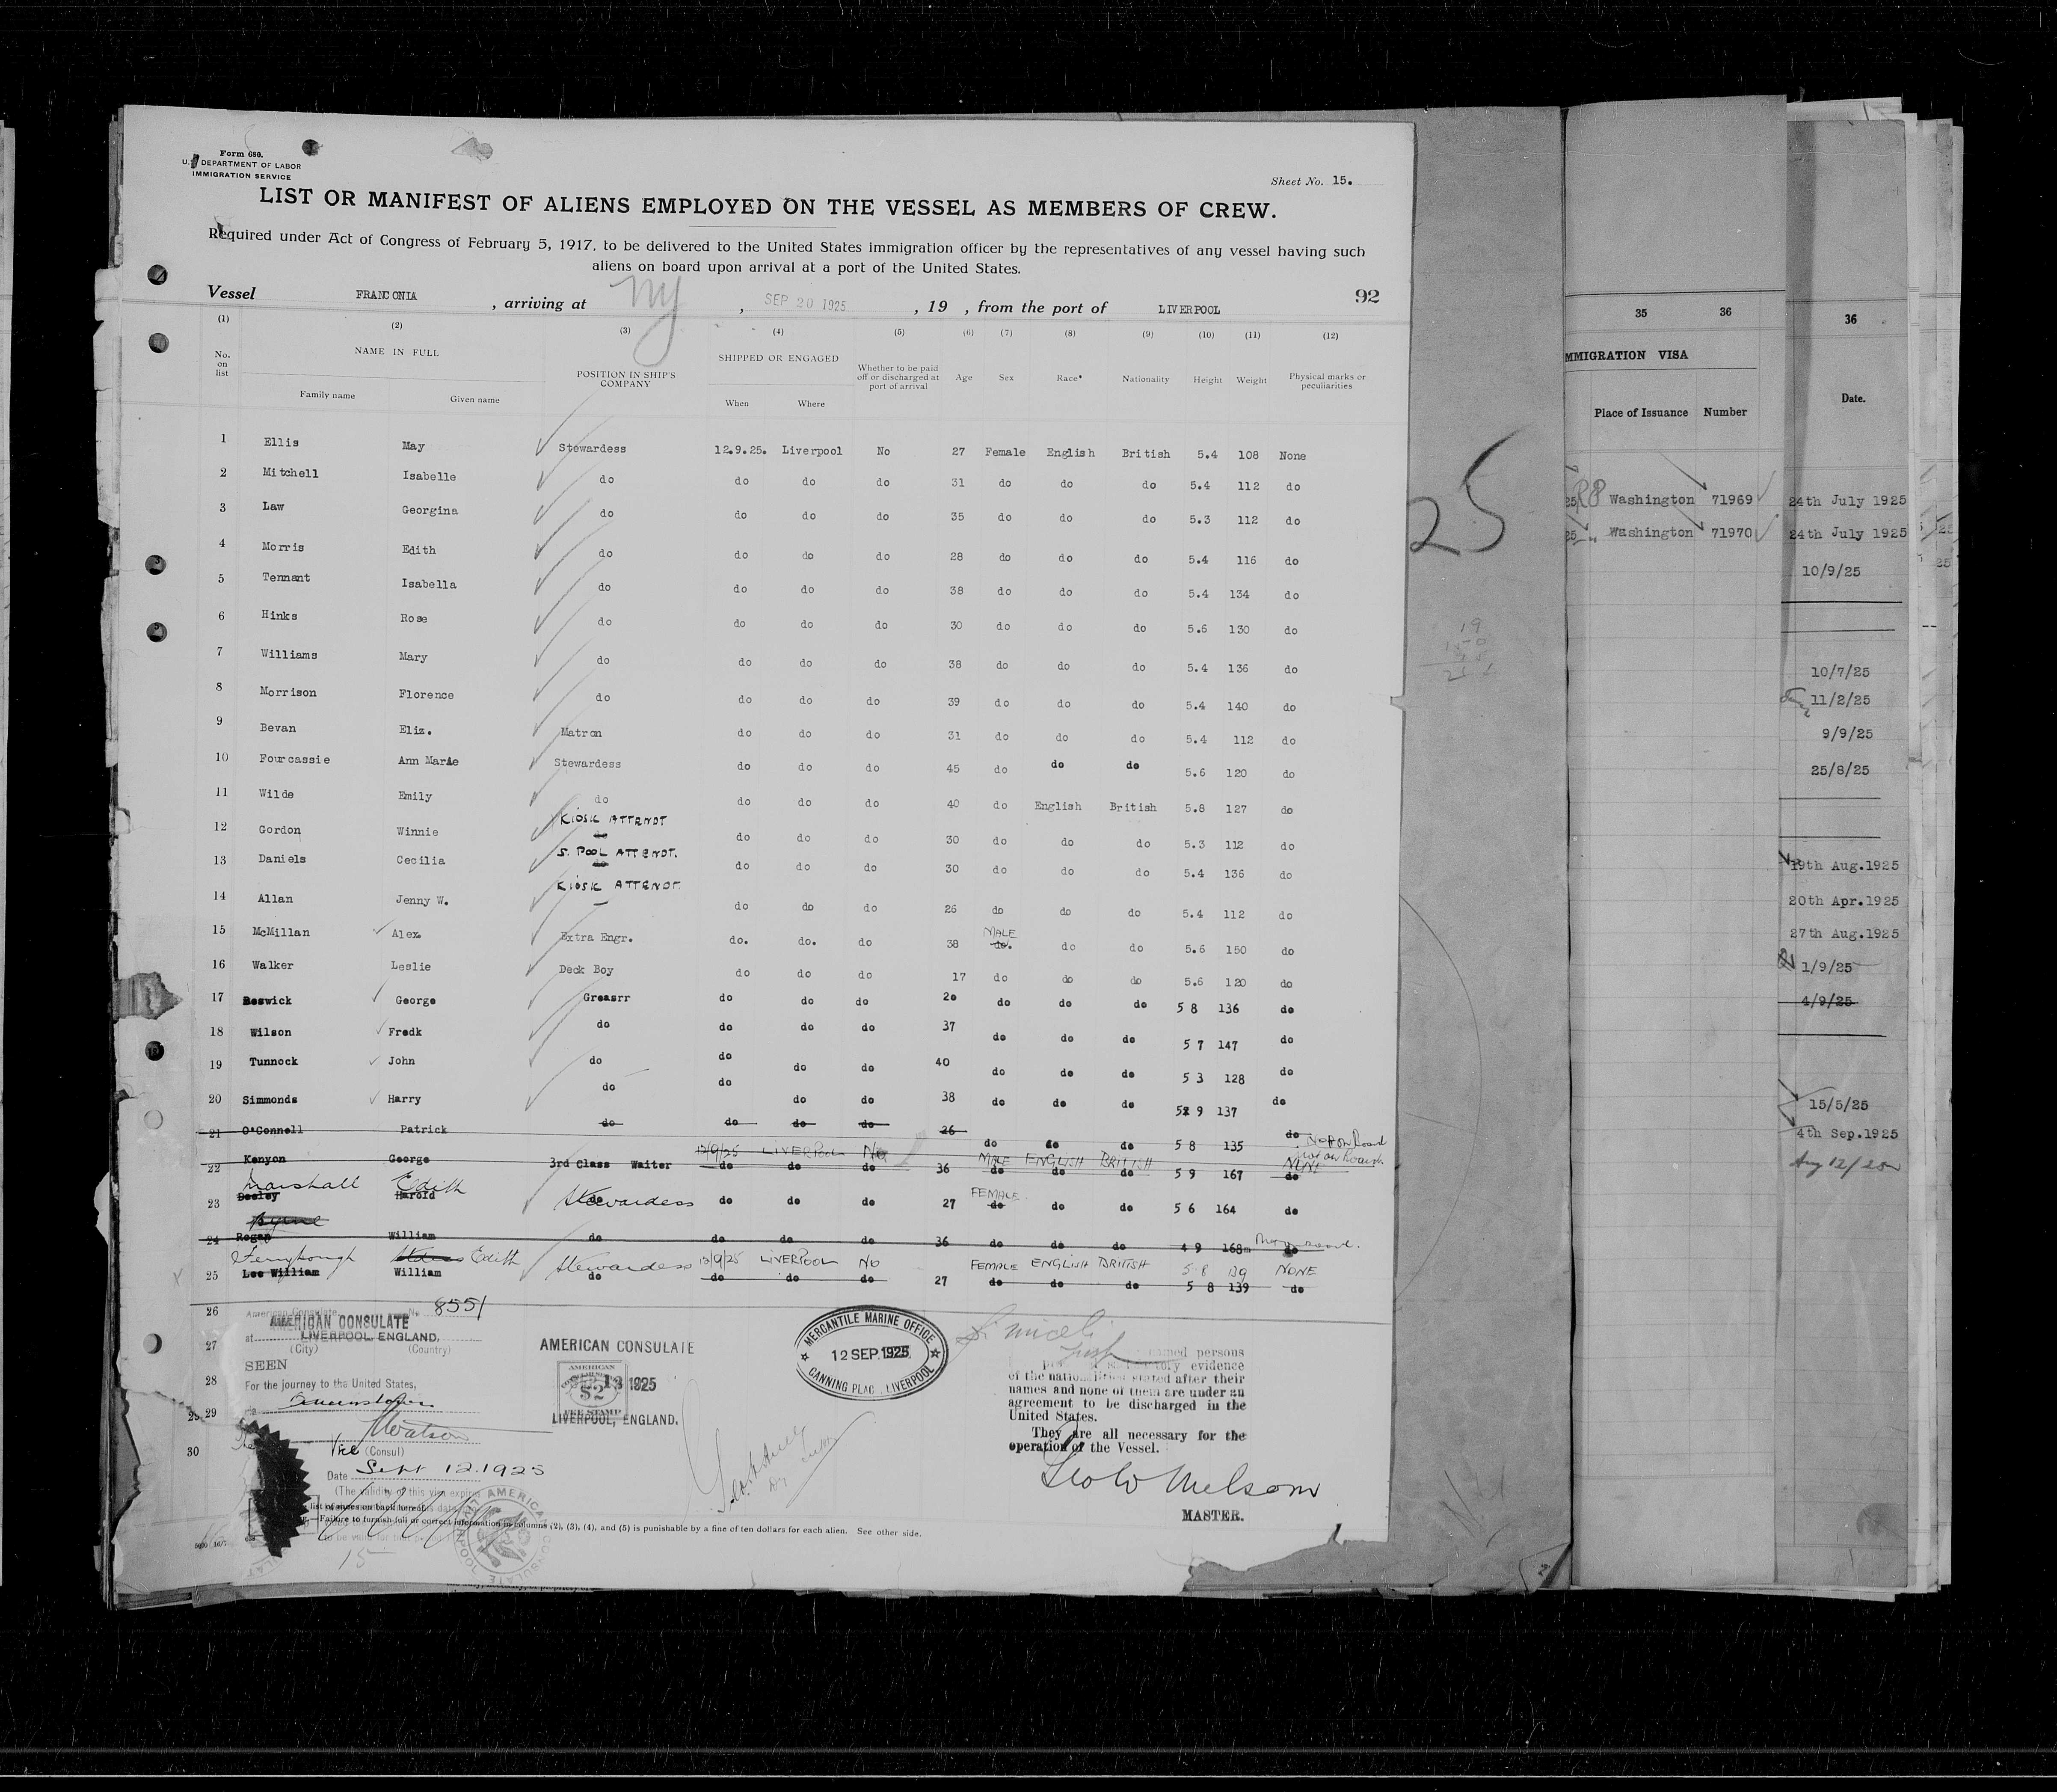 Form 680.
U. S. DEPARTMENT OF LABOR
IMMIGRATION SERVICE
Sheet No. 15.
LIST OR MANIFEST OF ALIENS EMPLOYED ON THE VESSEL AS MEMBERS OF CREW.
Required under Act of Congress of February 5, 1917, to be delivered to the United States immigration officer by the representatives of any vessel having such
aliens on board upon arrival at a port of the United States.
Vessel FRANCONIA , arriving at NY , SEP 20 1925 , 19 , from the port of LIVERPOOL 92
(1) (2) (3) (4) (5) (6) (7) (8) (9) (10) (11) (12)
No. on list NAME IN FULL Family name Given name POSITION IN SHIP'S COMPANY SHIPPED OR ENGAGED When Where Whether to be paid off or discharged at port of arrival Age Sex Race* Nationality Height Weight Physical marks or peculiarities
1 Ellis May Stewardess 12.9.25. Liverpool No 27 Female English British 5.4 108 None
2 Mitchell Isabelle do do do do 31 do do do 5.4 112 do
3 Law Georgina do do do do 35 do do do 5.3 112 do
4 Morris Edith do do do do 28 do do do 5.4 116 do
5 Tennant Isabella do do do do 38 do do do 5.4 134 do
6 Hinks Rose do do do do 30 do do do 5.6 130 do
7 Williams Mary do do do do 38 do do do 5.4 136 do
8 Morrison Florence do do do do 39 do do do 5.4 140 do
9 Bevan Eliz. Matron do do do 31 do do do 5.4 112 do
10 Fourcassie Ann Marie Stewardess do do do 45 do do do 5.6 120 do
11 Wilde Emily do do do do 40 do English British 5.8 127 do
12 Gordon Winnie KIOSK ATTENDT do do do do 30 do do do 5.3 112 do
13 Daniels Cecilia S. POOL ATTENDT. do do do do 30 do do do 5.4 136 do
14 Allan Jenny W. KIOSK ATTENDT. do do do 26 do do do 5.4 112 do
15 McMillan Alex. Extra Engr. do. do. do 38 MALE do. do do 5.6 150 do
16 Walker Leslie Deck Boy do do do 17 do do do 5.6 120 do
17 Beswick George Greasrr do do do 20 do do do 5 8 136 do
18 Wilson Fredk do do do do 37 do do do 5 7 147 do
19 Tunnock John do do do do 40 do do do 5 3 128 do
20 Simmonds Harry do do do do 38 do do do 5 9 137 do
21 O'Connell Patrick do do do do 26 do do do 5 8 135 do Not on Board
12/9/25 LIVERPOOL No MALE ENGLISH BRITISH NONE
22 Kenyon George 3rd Class Waiter do do do 36 do do do 5 9 167 do
Marshall Edith Stewardess FEMALE
23 Deeley Harold do do do do 27 do do do 5 6 164 do
Byrne
24 Regan William do do do do 36 do do do 4 9 168 do
Fernyhough Edith Stewardess 12/9/25 LIVERPOOL NO FEMALE ENGLISH BRITISH 5.8 139 NONE
25 Lee William William do do do do 27 do do do 5 8 139 do
26 American Consulate No 8551
AMERICAN CONSULATE
27 at LIVERPOOL, ENGLAND,
(City) (Country)
SEEN
28 For the journey to the United States,
29
Watson
30 Vice (Consul)
Date Sept 12.1925
(The validity of this visa expires
list of races on back hereof.
—Failure to furnish full or correct information in columns (2), (3), (4), and (5) is punishable by a fine of ten dollars for each alien. See other side.
15
AMERICAN CONSULATE
AMERICAN
$2
FEE STAMP
1925
LIVERPOOL, ENGLAND.
MERCANTILE MARINE OFFICE
12 SEP. 1925
CANNING PLACE LIVERPOOL
AMERICAN CONSULATE LIVERPOOL
named persons
evidence
of the nationalities stated after their
names and none of them are under an
agreement to be discharged in the
United States.
They are all necessary for the
operation of the Vessel.
Geo W Melsom
MASTER.
25
35 36
IMMIGRATION VISA
Place of Issuance Number
Washington 71969
Washington 71970
36
Date.
24th July 1925
24th July 1925
10/9/25
10/7/25
11/2/25
9/9/25
25/8/25
19th Aug.1925
20th Apr.1925
27th Aug.1925
1/9/25
4/9/25
15/5/25
4th Sep.1925
Aug 12/25